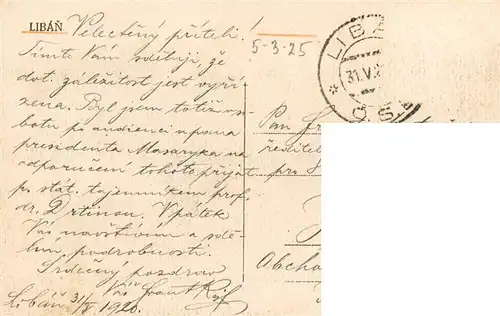 LIBÁŇ
Velectěný příteli!
5-3-25
LIBÁ
31.V.2
Tímto Vám sděluji, že
dot. záležitost jest vyří-
zena. Byl jsem totiž v so-
botu po audienci u pana
presidenta Masaryka na
odporučení tohoto přijat
p. stát. tajemníkem prof.
dr. Drtinou. V pátek
Vás navštívím a sdě-
lím podrobnosti.
Srdečný pozdrav
Váš
Libáň 31/V 1920.
Pan
ředitel
pro
Obcho